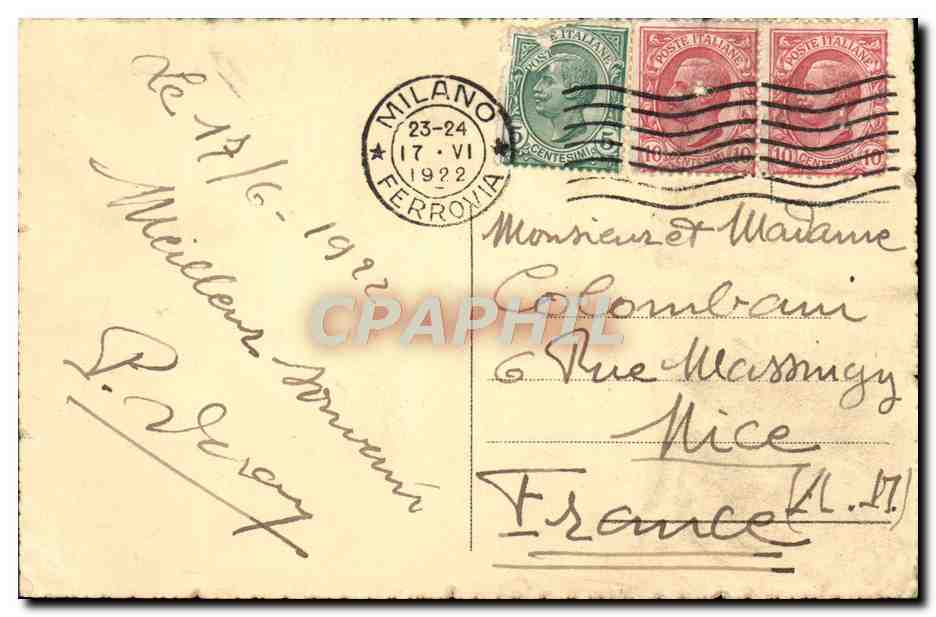 Le 17/6-1922
Meilleur souvenir
MILANO
23-24
17 · VI
1922
FERROVIA
POSTE ITALIANE
5 CENTESIMI 5
POSTE ITALIANE
10 CENTESIMI 10
POSTE ITALIANE
10 CENTESIMI 10
Monsieur et Madame
Colombani
6 Rue Massingy
Nice
(A. M.)
France
CPAPHIL